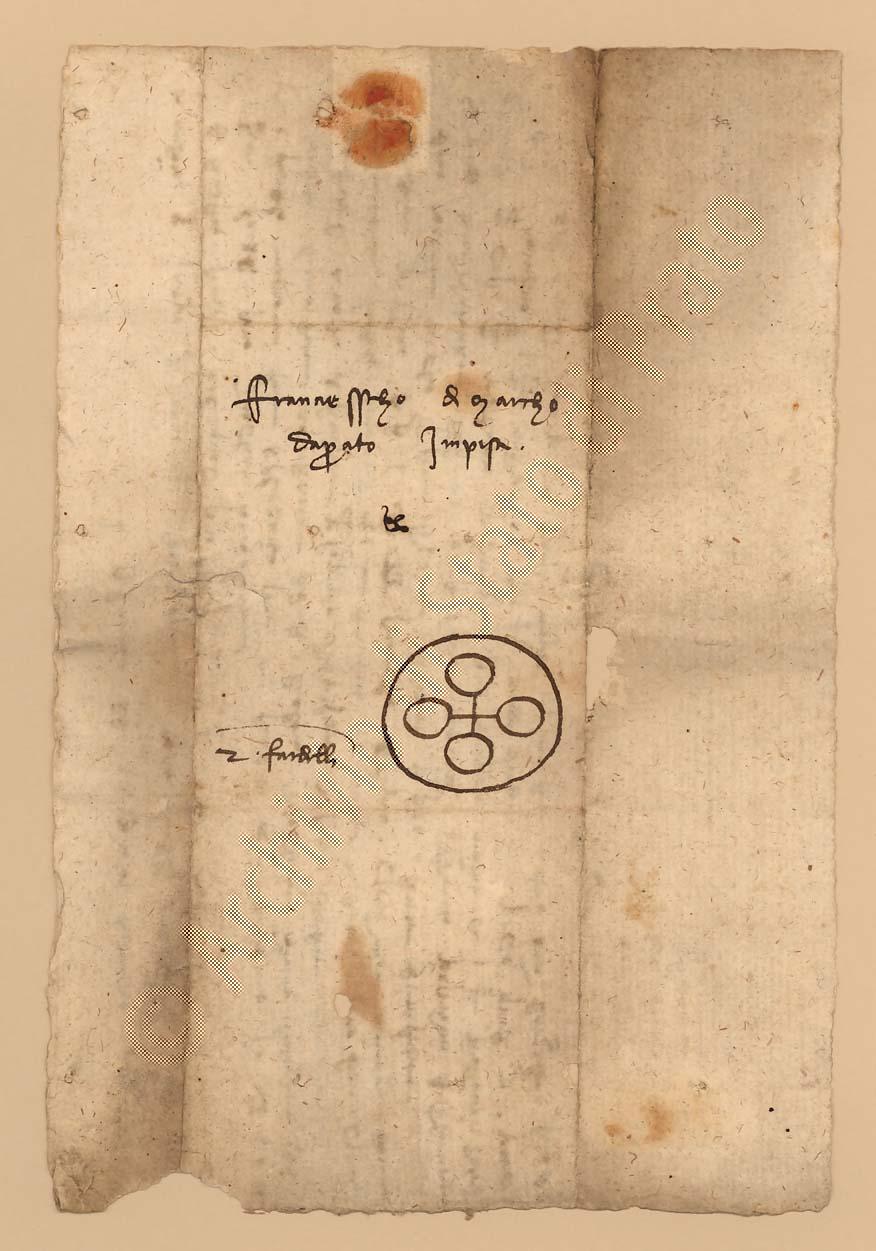 Franciesscho di Marcho
da Prato Im pisa.
2 fardelli
© Archivio di Stato di Prato